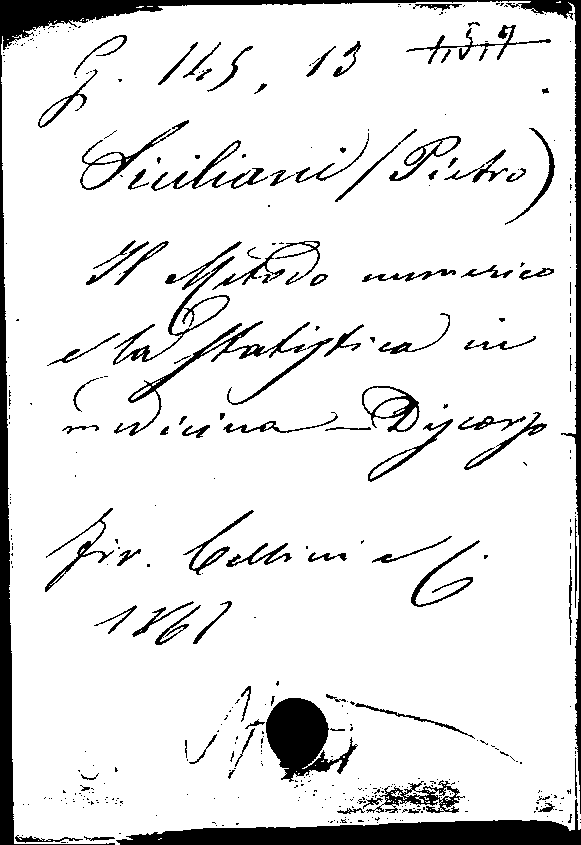 G. 145, 13 1,5,7
Siciliani (Pietro)
Il Metodo numerico
e la statistica in
medicina - Discorso
Fir. Cellini e C.
1867